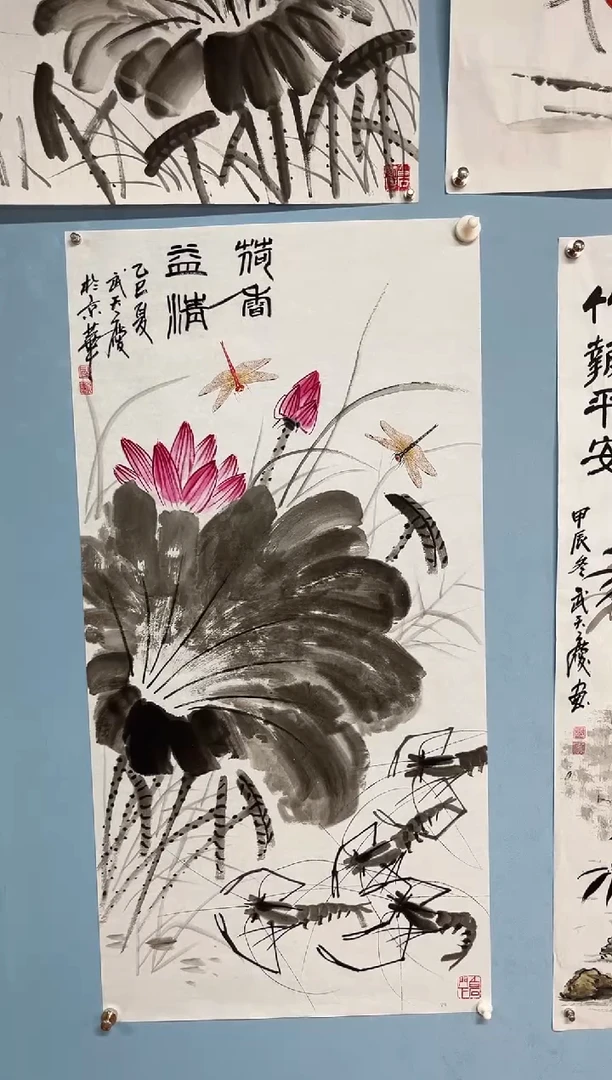 荷香
益清
乙巳夏
武天慶
於京華
竹報平安
甲辰冬武天慶画